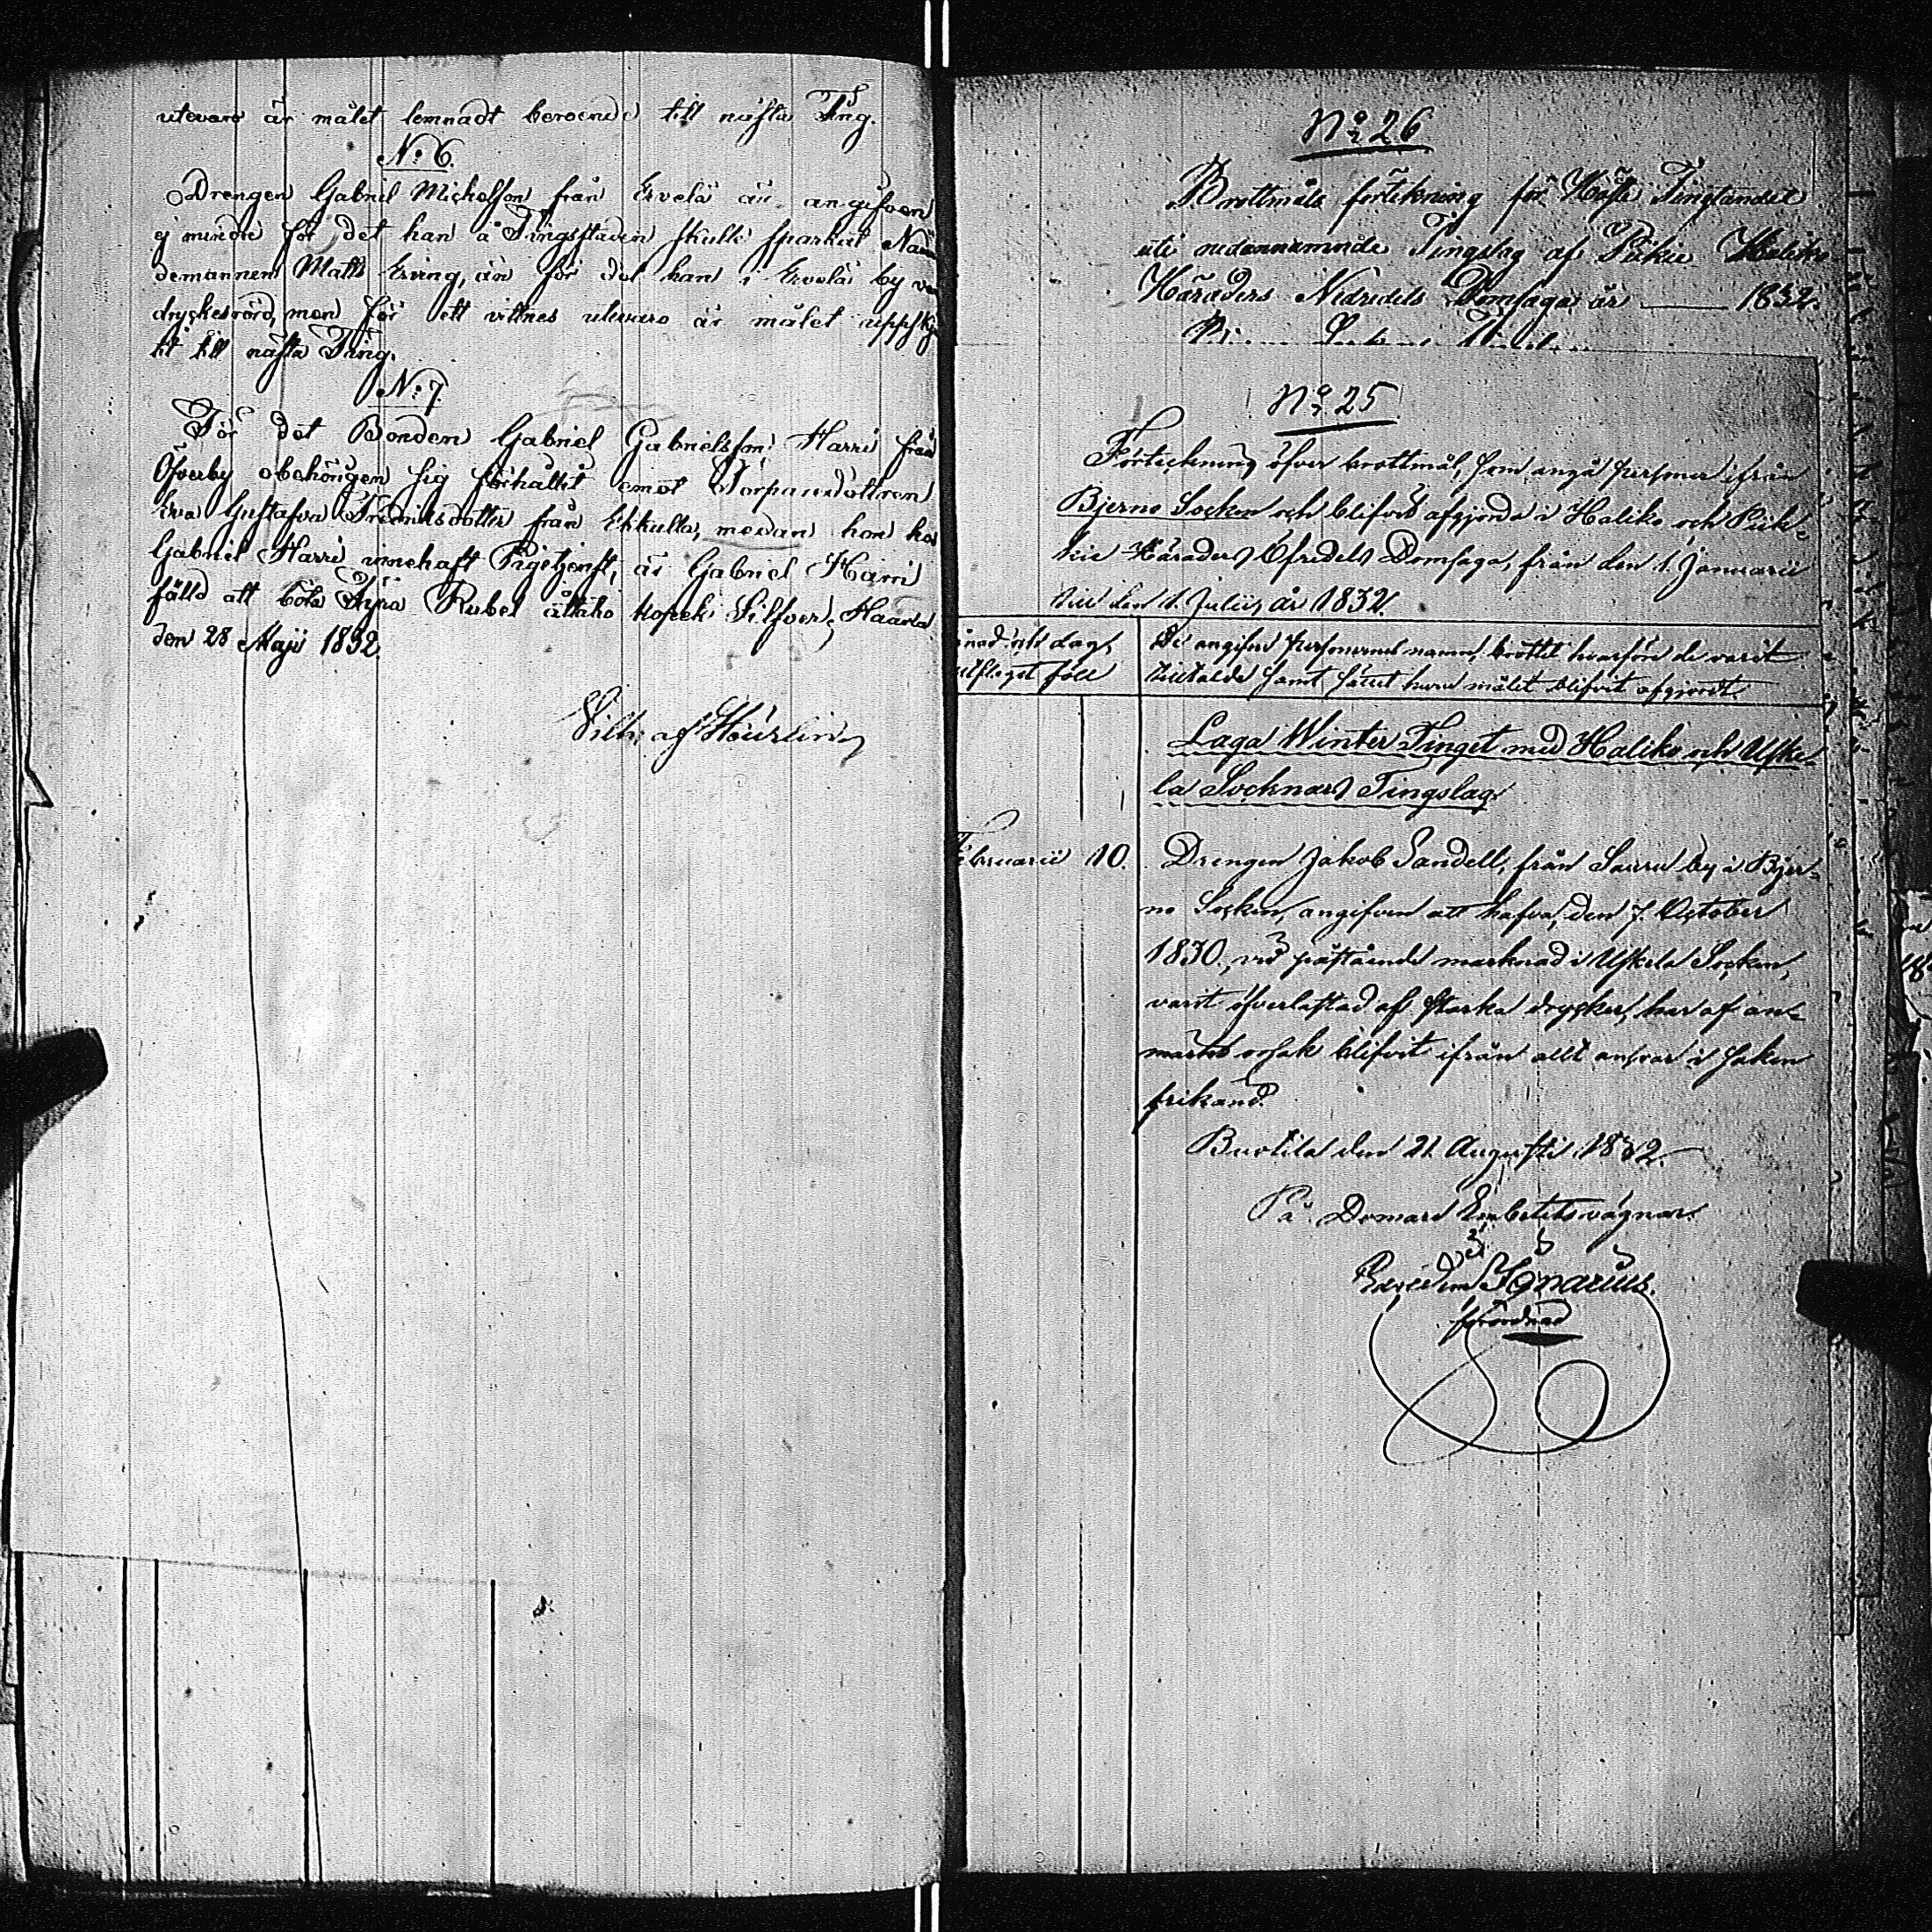 utevaro är målet lemnadt beroende till nästa Ting.
N:o 6.
Drengen Gabriel Michelsson från Ervelä är angifven
ej mindre för det han å Tingsstaden skulle sparkat Nämn
demannen Matts Erving, än för det han i Ervelä by va
dryckesrörd, men för ett vittnes utevaro är målet uppskju
tit till nästa Ting.
N:o 7.
För det Bonden Gabriel Gabrielsson Harri från
Öfverby obehörigen sig förhållit emot Torparedottren
Eva Gustafva Fredriksdotter från Ekkulla, medan hon hos
Gabriel Harri innehaft Pigetjenst, är Gabriel Harri
fälld att böta Fyra Rubel åttatio kopek Silfver; Haarla
den 28 Maji 1832.
Vilh: af Heurlin
No 26
Brottmåls förtekning för Höste Tingtandet
uti nedannämnde Tingslag af Pikie Haliko
Häraders Nedredels Domsaga år 1832.
No 25
Förteckning öfver brottmål, som angå personer ifrån
Bjerno Socken och blifvit afgjorde i Haliko och Pik-
kie Häraders Öfredels Domsaga, från den 1. Januarii
till den 1. Julii, år 1832.
De angifne personernes namn, brottet hvarföre de varit
tilltalde samt sättet huru målet blifvit afgjordt.
Laga Winter Tinget med Haliko och Uske-
la Socknars Tingslag.
Februarii 10. Drengen Jakob Sandell, från Saxru by i Bjer-
no Socken, angifven att hafva, den 7. October
1830, vid påstående marknad i Uskela Socken,
varit öfverlastad af starka drycker, har af an-
märkt orsak blifvit ifrån allt ansvar i saken
frikänd.
den 21. Augusti 1832.
På Domare Embetets vägnar.
förordnad